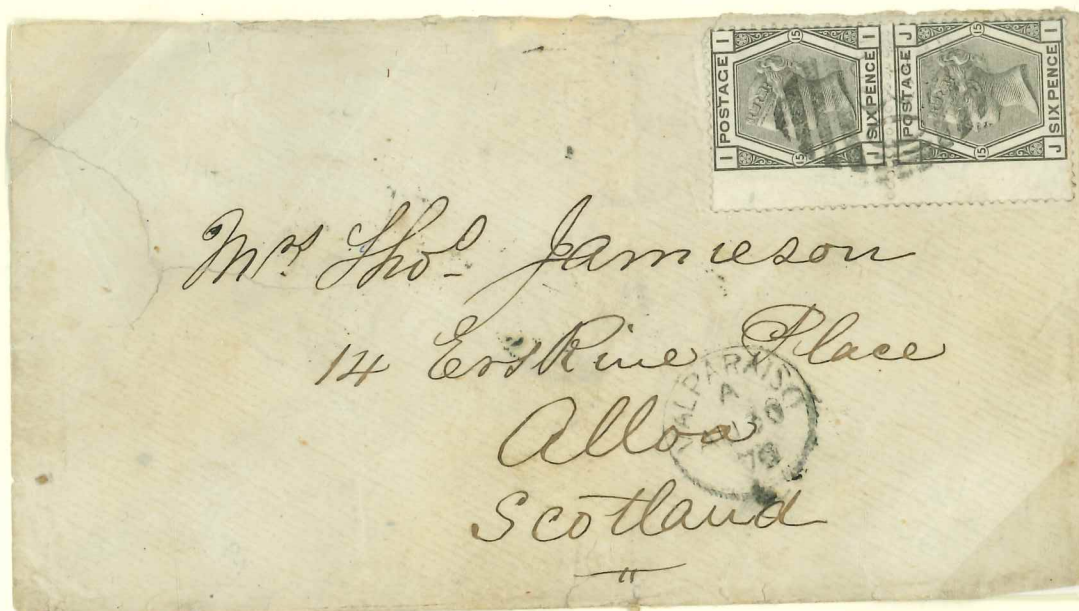 I POSTAGE I
15
15
J SIX PENCE I
J POSTAGE I
15
15
J SIX PENCE I
Mrs Thos Jamieson
14 Erskine Place
Alloa
Scotland
VALPARAISO
A
30
78